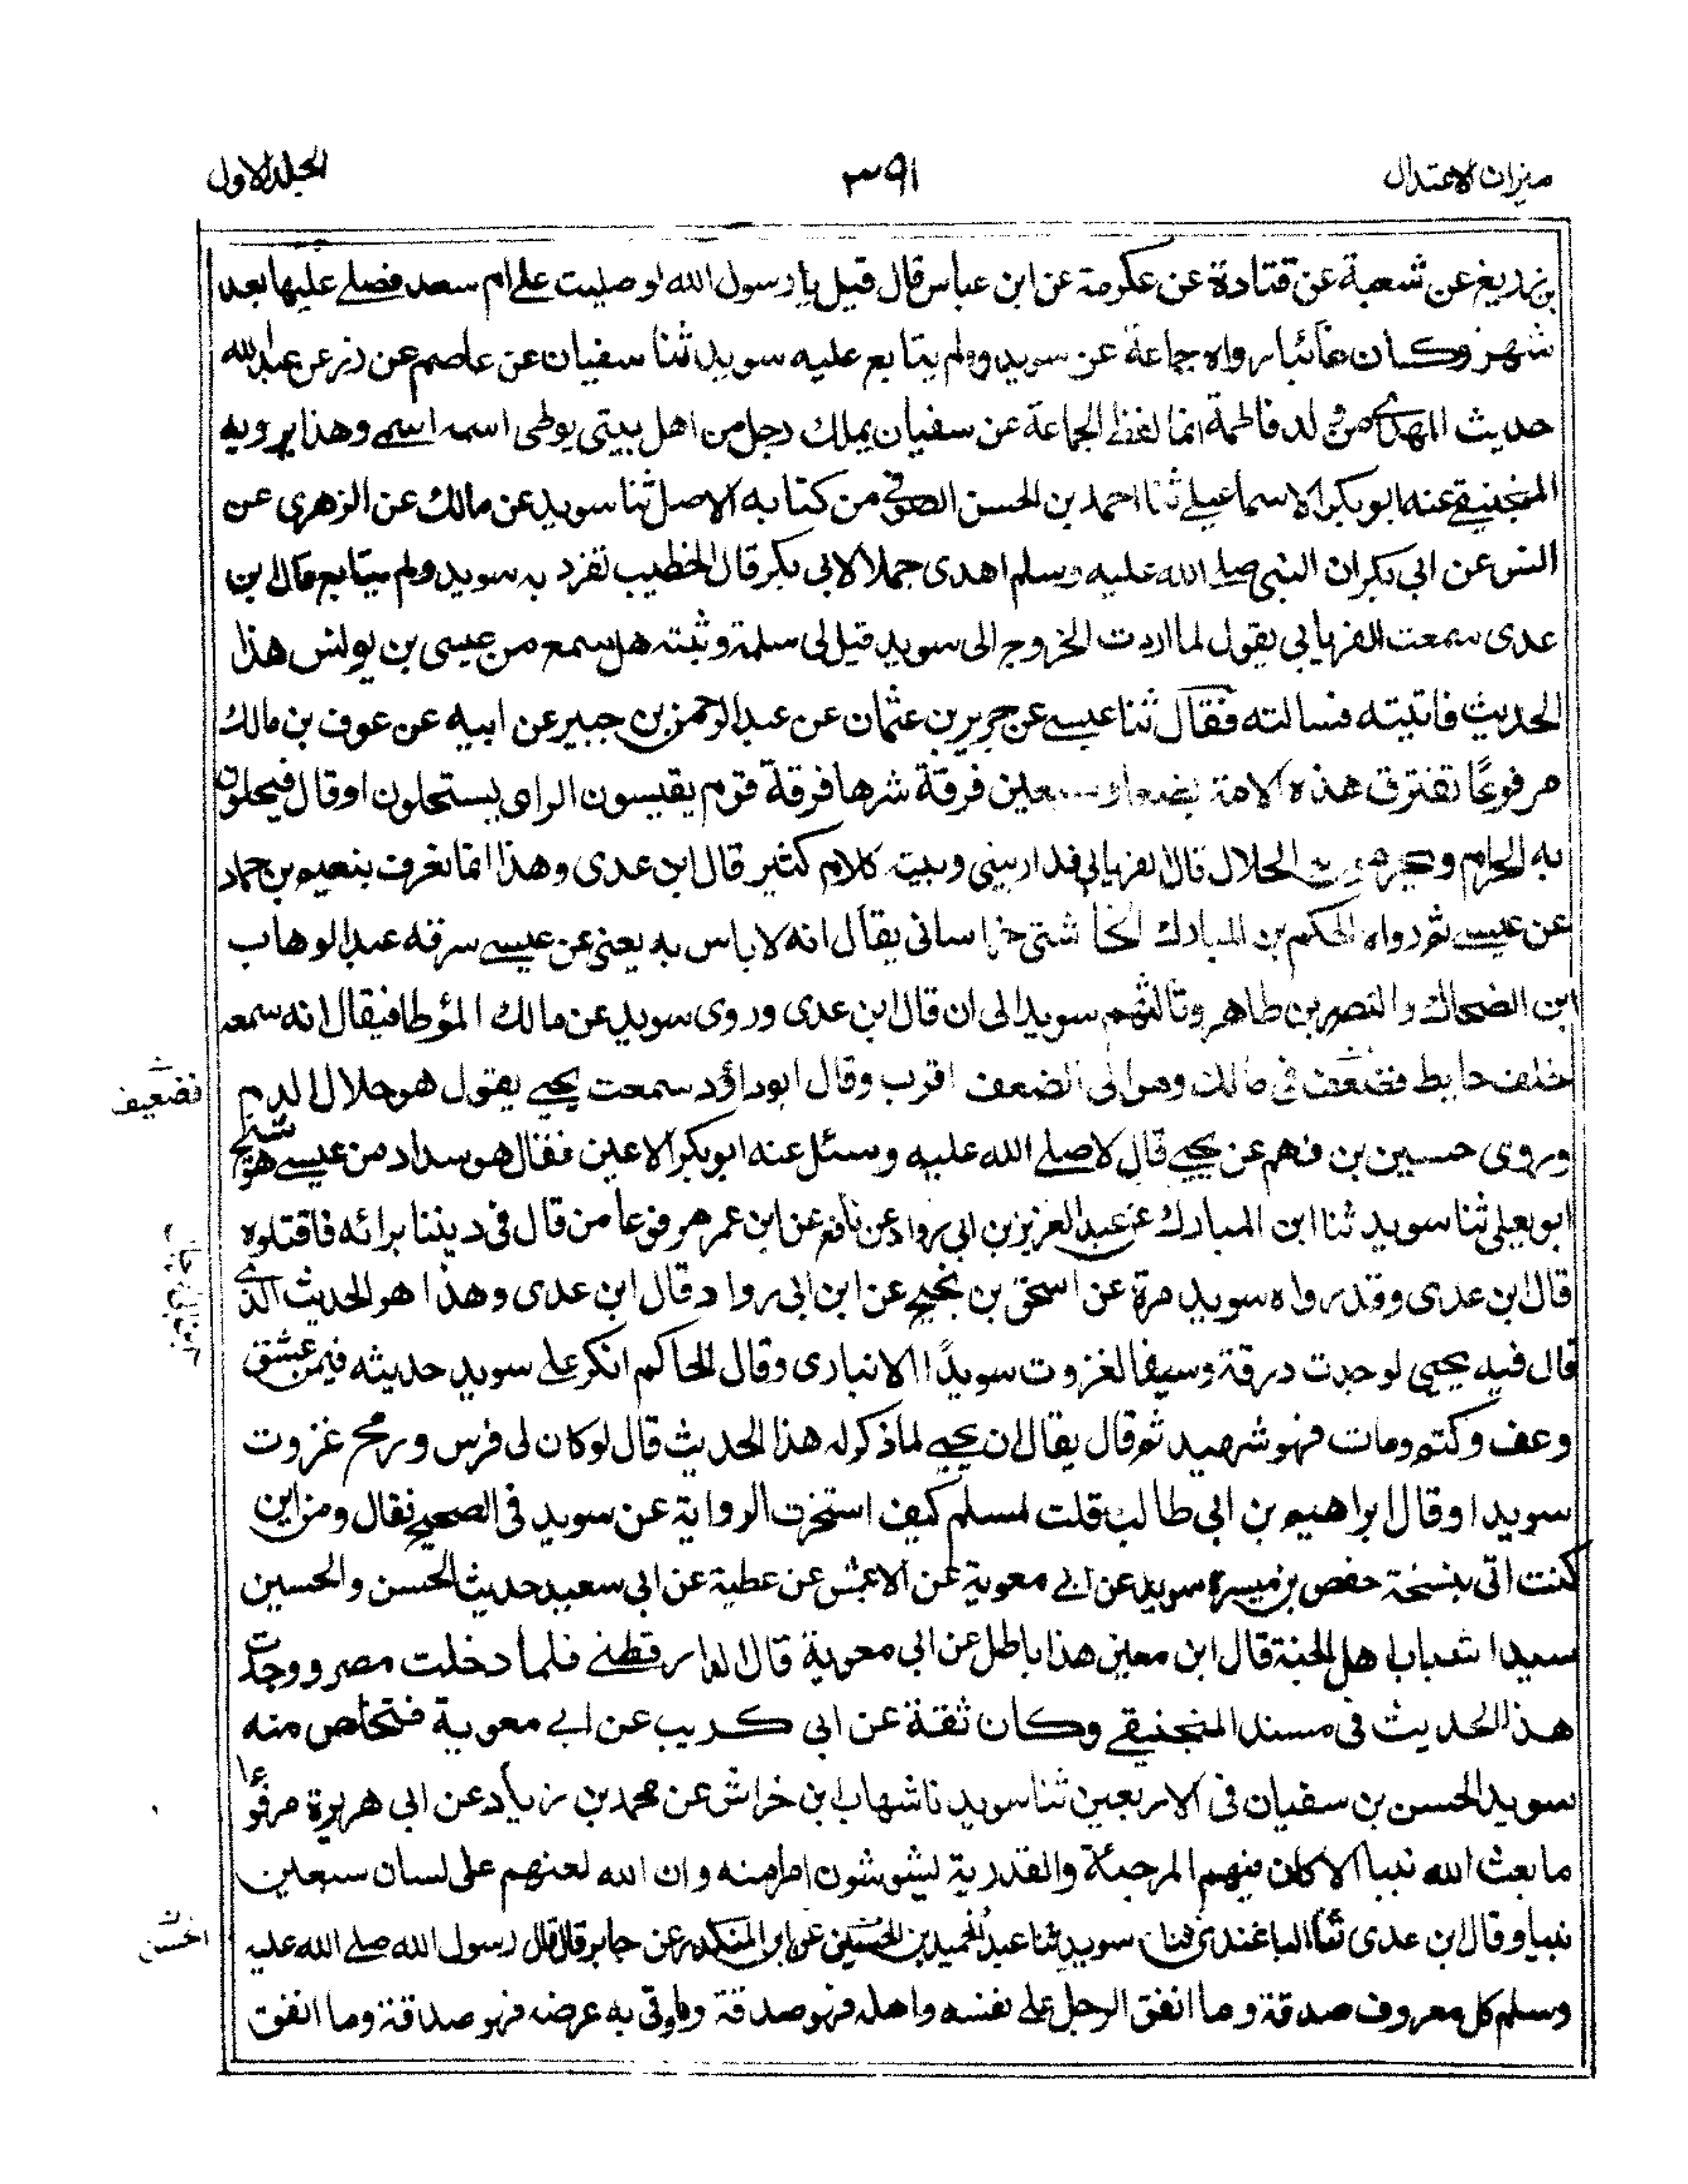 ميزان الاعتدال
٣٩١
الجلد الاول
بن زريع عن شعبة عن قتادة عن عكرمة عن ابن عباس قال قيل يا رسول الله لو صليت على ام سعد فصلے عليها بعد
شهر وكان غائبا رواه جماعة عن سويد ولم يتابع عليه سويد ثنا سفيان عن عاصم عن زر عن عبد الله
حديث المهدى من ولد فاطمة انما لفظ الجماعة عن سفيان يملك رجل من اهل بيتى يوطى اسمه اسمے وهذا يرويه
المنجنيقے عنه ابو بكر الاسماعيلے ثنا احمد بن الحسن الصوفے من كتابه الاصل ثنا سويد عن مالك عن الزهرى عن
انس عن ابى بكر ان النبى صلے الله عليه وسلم اهدى جملا لابى بكر قال الخطيب تفرد به سويد ولم يتابع قال ابن
عدى سمعت الفريابى يقول لما اردت الخروج الى سويد قيل لى سلمة وثبته هل سمع من عيسى بن يونس هذا
الحديث فاتيته فسالته فقال ثنا عيسے عن حريز بن عثمان عن عبد الرحمن بن جبير عن ابيه عن عوف بن مالك
مرفوعًا تفترق هذه الامة بضعا وسبعين فرقة شرها فرقة قوم يقيسون الراى يستحلون او قال فيحلون
به الحرام ويحرمون الحلال قال الفريابى فدار بينى وبينه كلام كثير قال ابن عدى وهذا انما يعرف بنعيم بن حماد
عن عيسے ثم رواه الحكم بن المبارك الخاشتى خراسانى يقال انه لا باس به يعنى عن عيسے سرقه عبد الوهاب
ابن الضحاك والنضر بن طاهر وثالثهم سويد الى ان قال ابن عدى وروى سويد عن مالك المؤطا فيقال انه سمعه
خلف حايط فضعف فى مالك وهو الى الضعف اقرب وقال ابو داؤد سمعت يحيے يقول هو حلال الدم
تضعيف
وروى حسين بن فهم عن يحيے قال لا صلے الله عليه وسئل عنه ابو بكر الاعين فقال هو سداد من عيسے هو شيخ
ابو يعلى ثنا سويد ثنا ابن المبارك عن عبد العزيز بن ابى رواد عن نافع عن ابن عمر مرفوعا من قال فى ديننا برائه فاقتلوه
قال ابن عدى وقد رواه سويد مرة عن اسحق بن نجيح عن ابن ابى رواد قال ابن عدى وهذا هو الحديث الذى
قال فيه يحيى لو جدت درقة وسيفا لغزوت سويدًا الانبارى وقال الحاكم انكر على سويد حديثه فيمن عشق
وعف وكتم ومات فهو شهيد ثم قال يقال ان يحيے لما ذكر له هذا الحديث قال لو كان لى فرس ورمح غزوت
سويدا وقال ابراهيم بن ابى طالب قلت لمسلم كيف استخرت الرواية عن سويد فى الصحيح فقال ومن اين
كنت اتى بنسخة حفص بن ميسرة سويد عن ابے معوية عن الاعمش عن عطية عن ابى سعيد حديث الحسن والحسين
سيدا شباب اهل الجنة قال ابن معين هذا باطل عن ابى معوية قال الدارقطنے فلما دخلت مصر ووجدت
هذا الحديث فى مسند المنجنيقے وكان ثقة عن ابى كريب عن ابے معوية فتخلص منه
سويد الحسن بن سفيان فى الاربعين ثنا سويد نا شهاب بن خراش عن محمد بن زياد عن ابى هريرة مرفوعا
ما بعث الله نبيا الا كان فيهم المرجئة والقدرية ليشوشون امر امته وان الله لعنهم على لسان سبعين
نبيا وقال ابن عدى ثنا الباغندى ثنا سويد ثنا عبد الحميد بن الحسين عن ابن المنكدر عن جابر قال قال رسول الله صلے الله عليه
الحسن
وسلم كل معروف صدقة وما انفق الرجل على نفسه واهله فهو صدقة وما وقى به عرضه فهو صداقة وما انفق